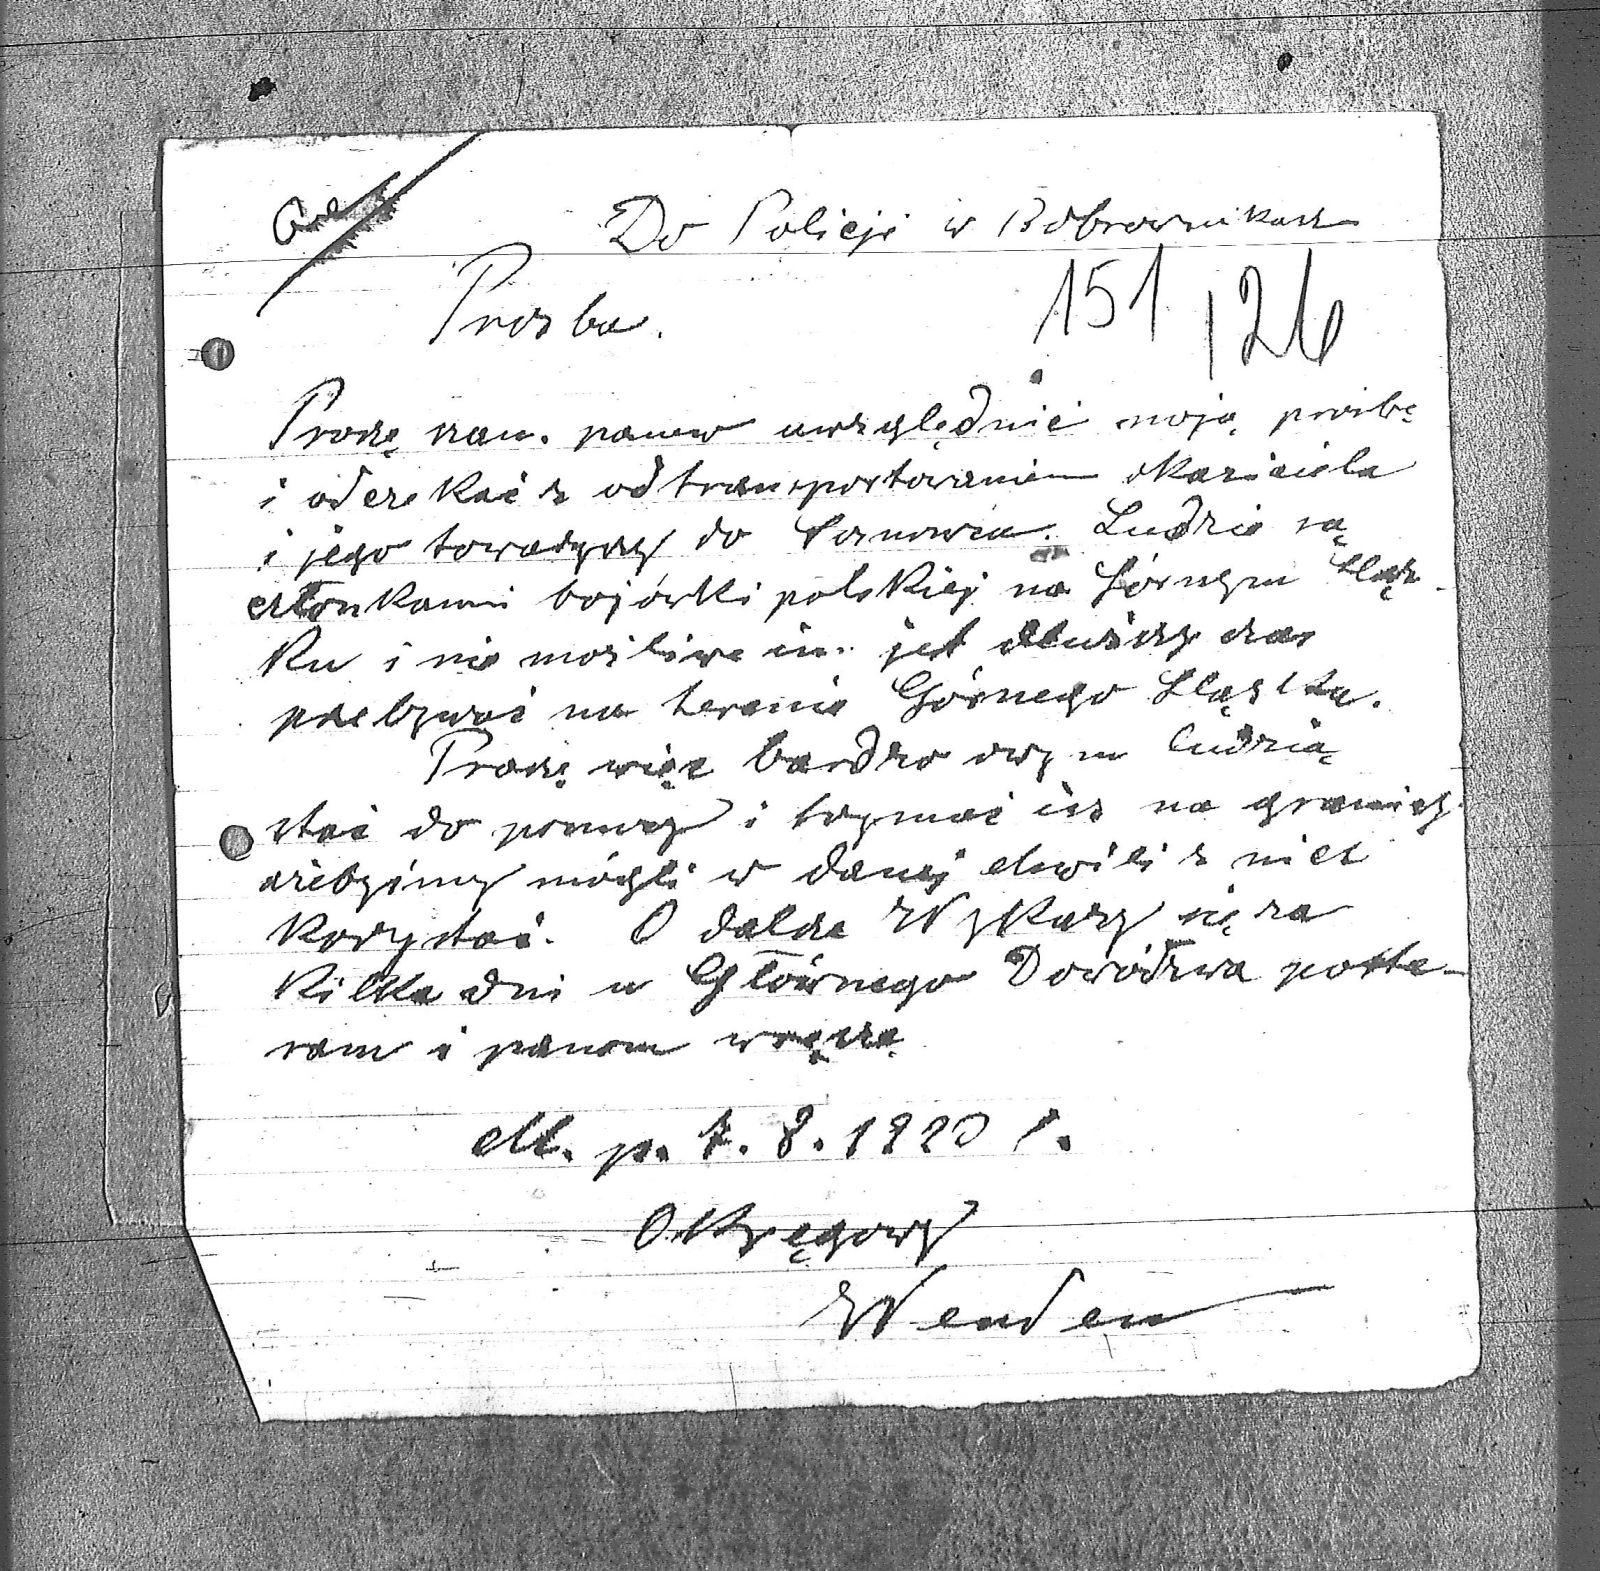 Do Policji w Bobrownikach
151
126
Prośba.
Proszę szan. panów uwzględnić moją prośbę
i odczekać z odtransportowaniem okaziciela
i jego towarzyszy do Sosnowca. Ludzie są
członkami bojówki polskiej na Górnym Śląs-
ku i nie możliwe im jest dłuższy czas
przebywać na terenie Górnego Śląska.
Proszę więc bardzo owym ludzią
stać do pomocy i trzymać ich na granicy
ażebyśmy mógli w danej chwili z nich
korzystać. O dalsze Wykazy się za
kilka dni u Głównego Dowódzwa posta-
ram i panom wręczę
M. p. 7. 8. 1920 r.
Okręgowy
Wenden